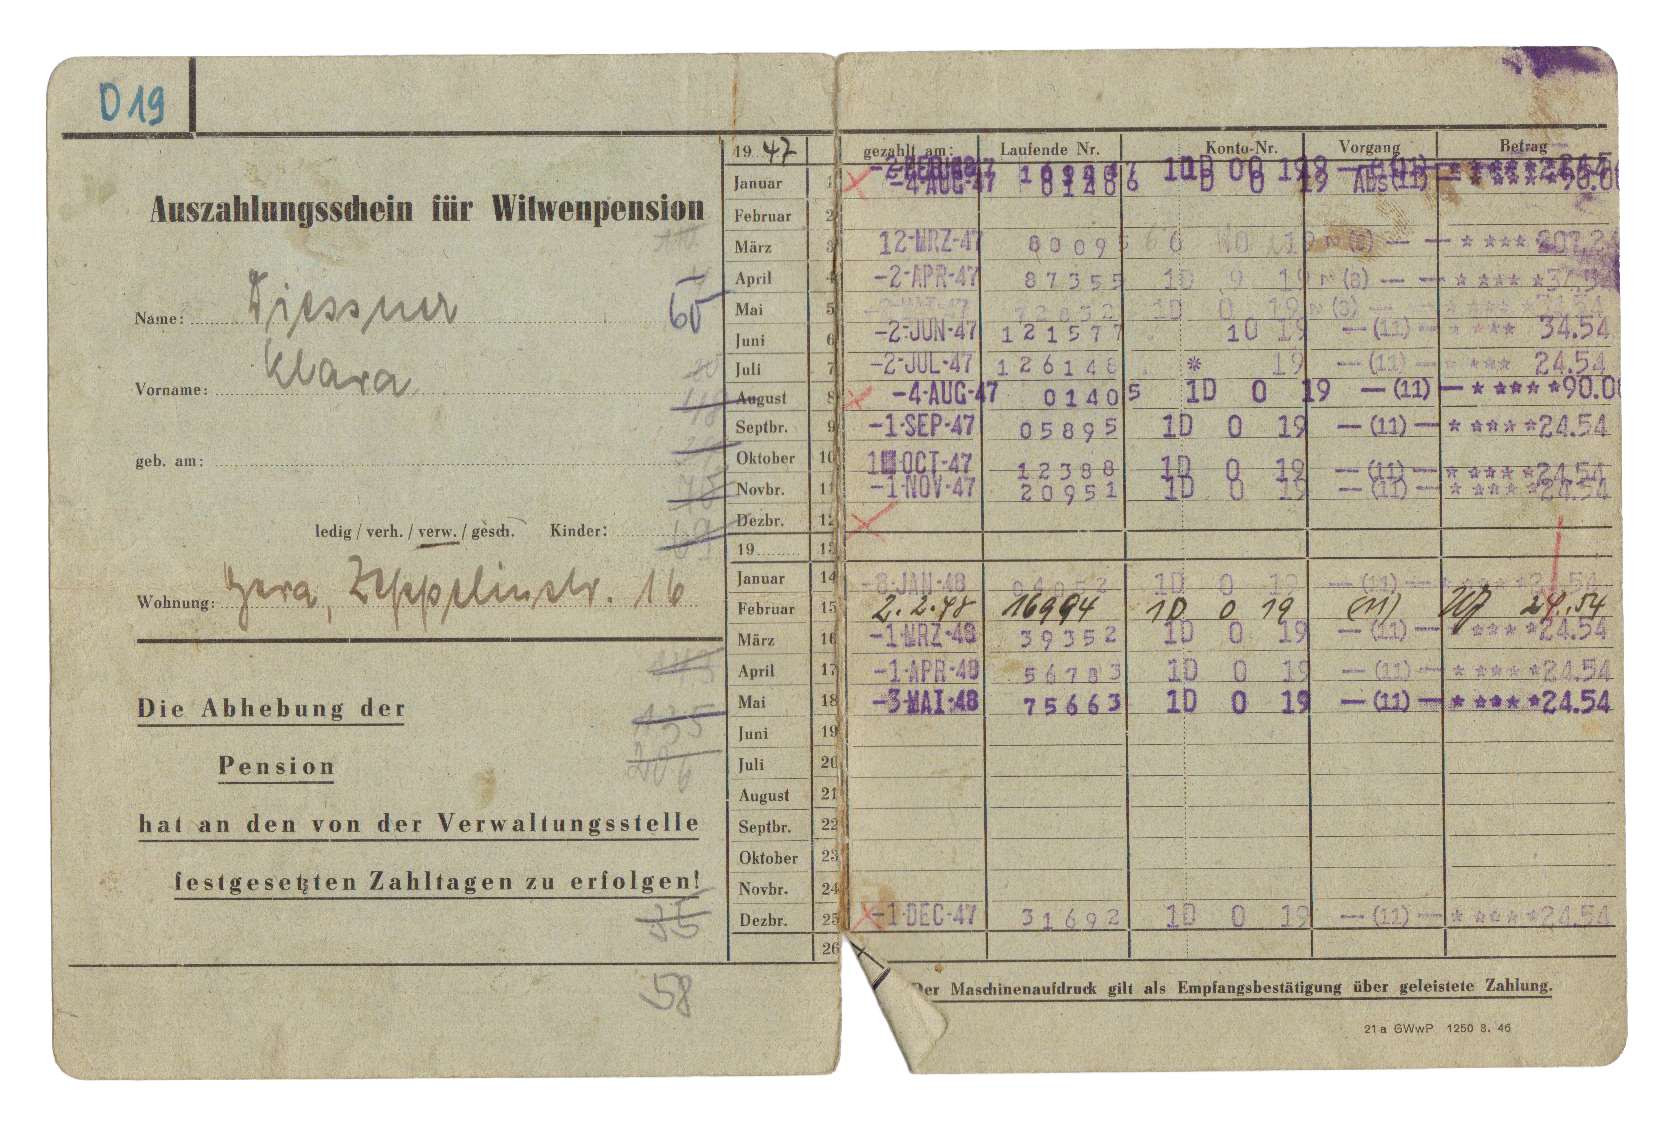 D 19
Auszahlungsschein für Witwenpension
Name: Diessner
Vorname: Klara
geb. am:
ledig / verh. / verw. / gesch. Kinder:
Wohnung: Gera, Zeppelinstr. 16
Die Abhebung der
Pension
hat an den von der Verwaltungsstelle
festgesetzten Zahltagen zu erfolgen!
110
65
20
118
70
69
143
135
206
35
58
19 47 gezahlt am: Laufende Nr. Konto-Nr. Vorgang Betrag
Januar 1 -4·AUG·47 01406 D 0 19 Abs(11) — ****90.00
Februar 2
März 3 12·MRZ·47 80095 0 19 (8) — — **** 207.24
April 4 -2·APR·47 87355 1D 9 19 (8) — — ****
Mai 5 72852 1D 0 19 (8) — ****
Juni 6 -2·JUN·47 121577 10 19 —(11)— **** 34.54
Juli 7 -2·JUL·47 126148 * 19 —(11)— *** 24.54
August 8 -4·AUG·47 01405 1D 0 19 —(11)— ****90.00
Septbr. 9 -1·SEP·47 05895 1D 0 19 —(11)— ****24.54
Oktober 10 OCT·47 12388 1D 0 19 —(11)— ****24.54
Novbr. 11 -1·NOV·47 20951 1D 0 19 —(11)— ****24.54
Dezbr. 12
19 13
Januar 14 -8·JAN·48 04852 1D 0 19 —(11)— ****24.54
Februar 15 2.2.48 16994 1D 0 19 (11) 24.54
März 16 -1·MRZ·48 39352 1D 0 19 —(11)— ****24.54
April 17 -1·APR·48 56783 1D 0 19 —(11)— ****24.54
Mai 18 -3·MAI·48 75663 1D 0 19 —(11)— ****24.54
Juni 19
Juli 20
August 21
Septbr. 22
Oktober 23
Novbr. 24
Dezbr. 25 -1·DEC·47 31692 1D 0 19 —(11)— ****24.54
26
Der Maschinenaufdruck gilt als Empfangsbestätigung über geleistete Zahlung.
21 a GWwP 1250 8. 46